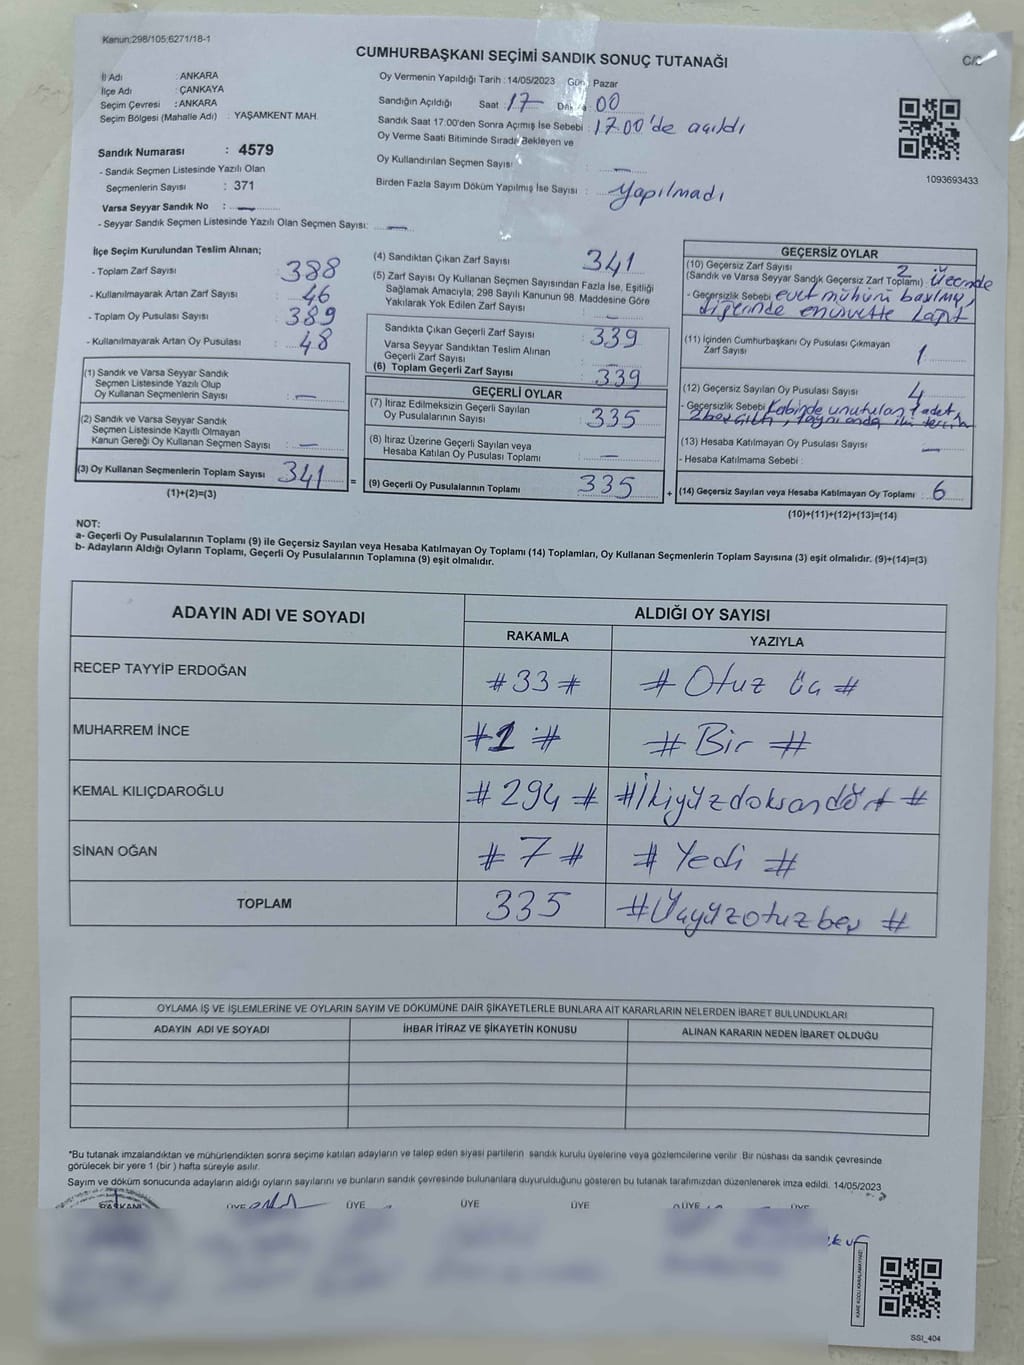 Kanun:298/105;6271/18-1
CUMHURBAŞKANI SEÇİMİ SANDIK SONUÇ TUTANAĞI
İl Adı : ANKARA
İlçe Adı : ÇANKAYA
Seçim Çevresi : ANKARA
Seçim Bölgesi (Mahalle Adı) : YAŞAMKENT MAH.
Sandık Numarası : 4579
- Sandık Seçmen Listesinde Yazılı Olan
Seçmenlerin Sayısı : 371
Varsa Seyyar Sandık No : —
- Seyyar Sandık Seçmen Listesinde Yazılı Olan Seçmen Sayısı: —
Oy Vermenin Yapıldığı Tarih : 14/05/2023 Gün Pazar
Sandığın Açıldığı Saat : 17 00
Sandık Saat 17.00'den Sonra Açılmış İse Sebebi : 17.00'de açıldı
Oy Verme Saati Bitiminde Sırada Bekleyen ve
Oy Kullandırılan Seçmen Sayısı : —
Birden Fazla Sayım Döküm Yapılmış İse Sayısı : Yapılmadı
1093693433
İlçe Seçim Kurulundan Teslim Alınan;
- Toplam Zarf Sayısı : 388
- Kullanılmayarak Artan Zarf Sayısı : 46
- Toplam Oy Pusulası Sayısı : 389
- Kullanılmayarak Artan Oy Pusulası : 48
(1) Sandık ve Varsa Seyyar Sandık
Seçmen Listesinde Yazılı Olup
Oy Kullanan Seçmenlerin Sayısı : —
(2) Sandık ve Varsa Seyyar Sandık
Seçmen Listesinde Kayıtlı Olmayan
Kanun Gereği Oy Kullanan Seçmen Sayısı : —
(3) Oy Kullanan Seçmenlerin Toplam Sayısı 341 =
(1)+(2)=(3)
(4) Sandıktan Çıkan Zarf Sayısı : 341
(5) Zarf Sayısı Oy Kullanan Seçmen Sayısından Fazla İse, Eşitliği
Sağlamak Amacıyla; 298 Sayılı Kanunun 98. Maddesine Göre
Yakılarak Yok Edilen Zarf Sayısı : —
Sandıkta Çıkan Geçerli Zarf Sayısı : 339
Varsa Seyyar Sandıktan Teslim Alınan
Geçerli Zarf Sayısı : —
(6) Toplam Geçerli Zarf Sayısı : 339
GEÇERLİ OYLAR
(7) İtiraz Edilmeksizin Geçerli Sayılan
Oy Pusulalarının Sayısı : 335
(8) İtiraz Üzerine Geçerli Sayılan veya
Hesaba Katılan Oy Pusulası Toplamı : —
(9) Geçerli Oy Pusulalarının Toplamı : 335 +
GEÇERSİZ OYLAR
(10) Geçersiz Zarf Sayısı 2
(Sandık ve Varsa Seyyar Sandık Geçersiz Zarf Toplamı) : Üzerinde
- Geçersizlik Sebebi evet mühürü basılmış,
diğerinde
(11) İçinden Cumhurbaşkanı Oy Pusulası Çıkmayan
Zarf Sayısı : 1
(12) Geçersiz Sayılan Oy Pusulası Sayısı : 4
- Geçersizlik Sebebi Kabinde unutulan 1 adet,
(13) Hesaba Katılmayan Oy Pusulası Sayısı : —
- Hesaba Katılmama Sebebi :
(14) Geçersiz Sayılan veya Hesaba Katılmayan Oy Toplamı : 6
(10)+(11)+(12)+(13)=(14)
NOT:
a- Geçerli Oy Pusulalarının Toplamı (9) ile Geçersiz Sayılan veya Hesaba Katılmayan Oy Toplamı (14) Toplamları, Oy Kullanan Seçmenlerin Toplam Sayısına (3) eşit olmalıdır. (9)+(14)=(3)
b- Adayların Aldığı Oyların Toplamı, Geçerli Oy Pusulalarının Toplamına (9) eşit olmalıdır.
ADAYIN ADI VE SOYADI ALDIĞI OY SAYISI
RAKAMLA YAZIYLA
RECEP TAYYİP ERDOĞAN #33# # Otuz üç #
MUHARREM İNCE #1# # Bir #
KEMAL KILIÇDAROĞLU #294# #İkiyüzdoksandört #
SİNAN OĞAN #7# # Yedi #
TOPLAM 335 #Üçyüzotuzbeş #
OYLAMA İŞ VE İŞLEMLERİNE VE OYLARIN SAYIM VE DÖKÜMÜNE DAİR ŞİKAYETLERLE BUNLARA AİT KARARLARIN NELERDEN İBARET BULUNDUKLARI
ADAYIN ADI VE SOYADI İHBAR İTİRAZ VE ŞİKAYETİN KONUSU ALINAN KARARIN NEDEN İBARET OLDUĞU
*Bu tutanak imzalandıktan ve mühürlendikten sonra seçime katılan adayların ve talep eden siyasi partilerin sandık kurulu üyelerine veya gözlemcilerine verilir. Bir nüshası da sandık çevresinde
görülecek bir yere 1 (bir ) hafta süreyle asılır.
Sayım ve döküm sonucunda adayların aldığı oyların sayılarını ve bunların sandık çevresinde bulunanlara duyurulduğunu gösteren bu tutanak tarafımızdan düzenlenerek imza edildi. 14/05/2023
BAŞKAN ÜYE ÜYE ÜYE ÜYE ÜYE ÜYE
KARE KODU KARALAMAYINIZ!
SSI_404